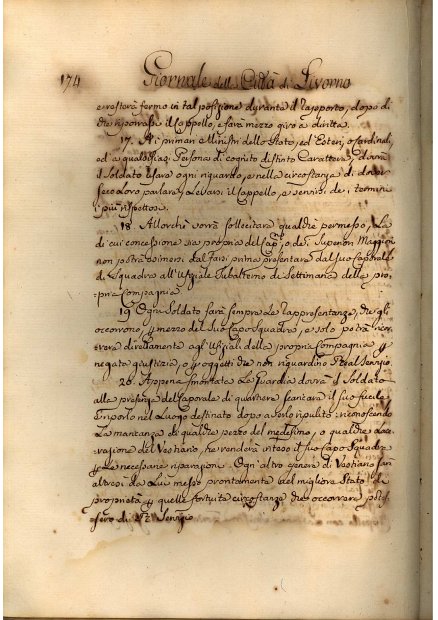 174 Giornale della Città di Livorno
e resterà fermo in tal posizione durante il rapporto, dopo di
che riporrassi il Cappello, e farà mezzo giro a diritta.
17. Ai primari Ministri dello Stato, ed Esteri, o Cardinali,
ed a qualsisia Persona di cognito distinto Carattere, dovrà
il Soldato usare ogni riguardo, e nella circostanza di dover
seco loro parlare, levarsi il Cappello, e servirsi de i termini
i più rispettosi.
18. Allorchè vorrà sollecitare qualche permesso, La
di cui concessione sia propria del Cap. o de i Superiori Maggiori
non potrà esimersi dal farsi prima presentare dal suo Caporale
di Squadra all'Ufiziale Subalterno di Settimana della pro-
pria Compagnia.
19. Ogni Soldato farà sempre le rappresentanze, che gli
occorrono, mezzo del suo Capo Squadra, e solo potrà ricor-
rere direttamente agl'Ufiziali della propria Compagnia
negata giustizia, o oggetti che non riguardino Real Servizio
20. Appena smontata la Guardia dovrà il Soldato
alla presenza del Caporale di quartiere scaricare il suo fucile
e riporlo nel Luogo destinato dopo averlo ripulito; riconoscendo
La mancanza di qualche pezzo del medesimo, o qualche Lace-
razione del Vestiario, ne renderà inteso il suo Capo Squadra
Le necessarie riparazioni. Ogni altro genere di Vestiario sarà
altresì da Lui messo prontamente nel migliore Stato di
proprietà quelle fortuite circostanze che occorrere potes-
sero di Servizio